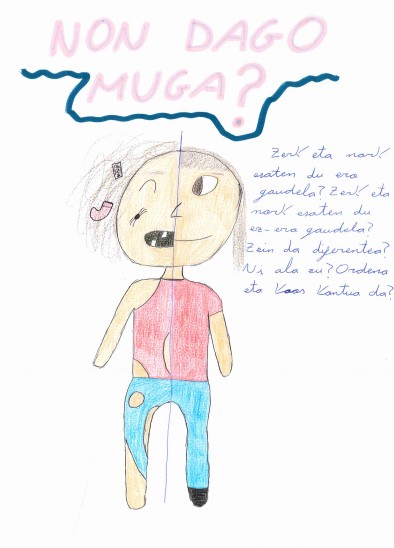 NON DAGO
MUGA?
Zerk eta nork
esaten du era
gaudela? Zerk eta
nork esaten du
ez-era gaudela?
Zein da diferentea?
Ni ala zu? Ordena
eta Kaos Kontua da?